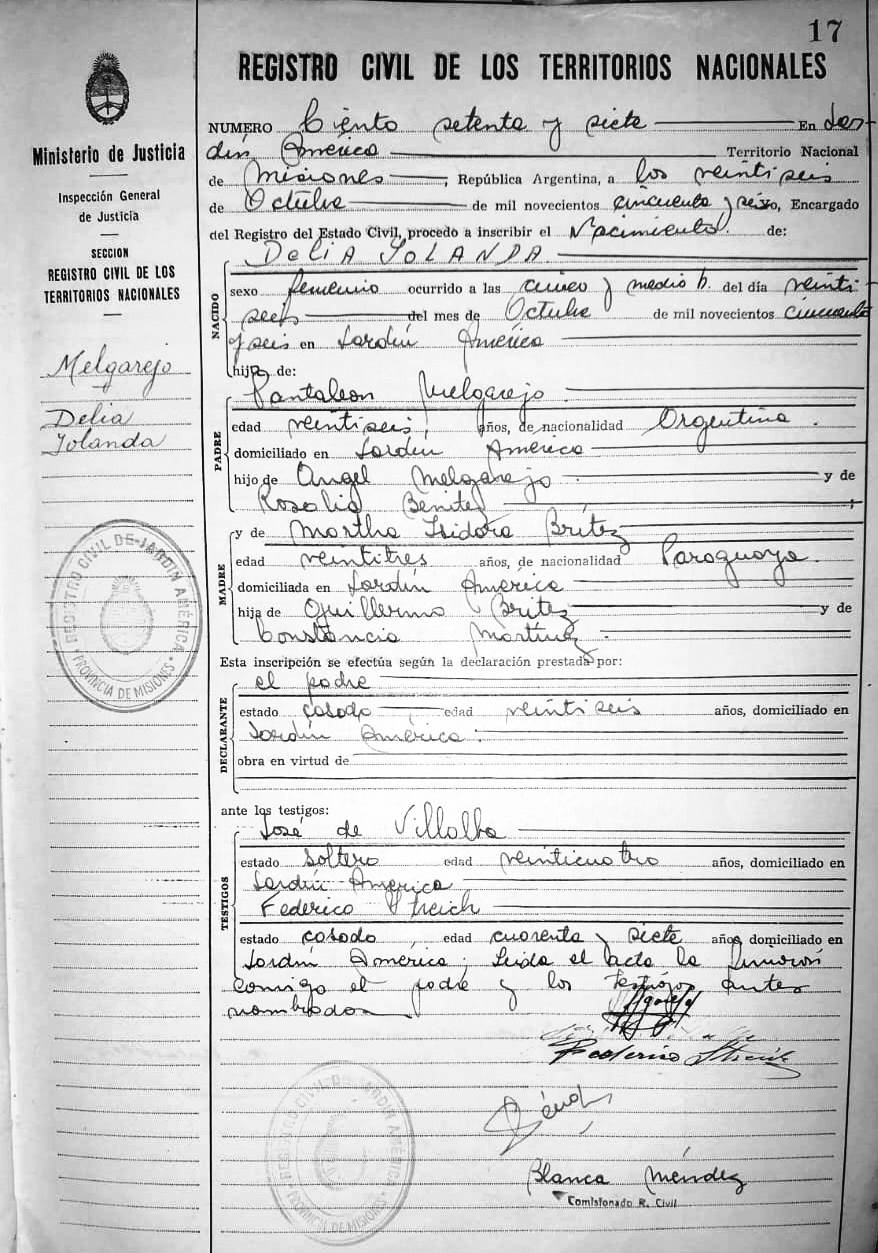 17
REGISTRO CIVIL DE LOS TERRITORIOS NACIONALES
Ministerio de Justicia
Inspección General
de Justicia
SECCION
REGISTRO CIVIL DE LOS
TERRITORIOS NACIONALES
Melgarejo
Delia
Yolanda
REGISTRO CIVIL DE JARDIN AMÉRICA
PROVINCIA DE MISIONES
NUMERO Ciento setenta y siete En Jar-
dín América Territorio Nacional
de Misiones, República Argentina, a los veintiseis
de Octubre de mil novecientos cincuenta y seis, Encargado
del Registro del Estado Civil, procedo a inscribir el Nacimiento de:
NACIDO
DELIA YOLANDA
sexo femenino ocurrido a las cinco y media h. del día veinti-
seis del mes de Octubre de mil novecientos cincuenta
y seis en Jardín América
hija de:
PADRE
Pantaleon Melgarejo
edad veintiseis, años, de nacionalidad Argentina.
domiciliado en Jardín América
hijo de Angel Melgarejo y de
Rosalia Benitez;
MADRE
y de Martha Isidora Brítez
edad veintitres años, de nacionalidad Paraguaya
domiciliada en Jardín América
hija de Guillermo Brítez y de
Constancia Martínez.
Esta inscripción se efectúa según la declaración prestada por:
DECLARANTE
el padre
estado casado, edad veintiseis años, domiciliado en
Jardín América.
obra en virtud de
ante los testigos:
TESTIGOS
José de Villalba
estado soltero edad veinticuatro años, domiciliado en
Jardín América
Federico Streich
estado casado, edad cuarenta y siete años domiciliado en
Jardín América. Leida el acta la firmaron
conmigo el padre y los testigos antes
nombrados
Federico Streich
REGISTRO CIVIL DE JARDIN AMÉRICA
PROVINCIA DE MISIONES
Blanca Méndez
Comisionado R. Civil